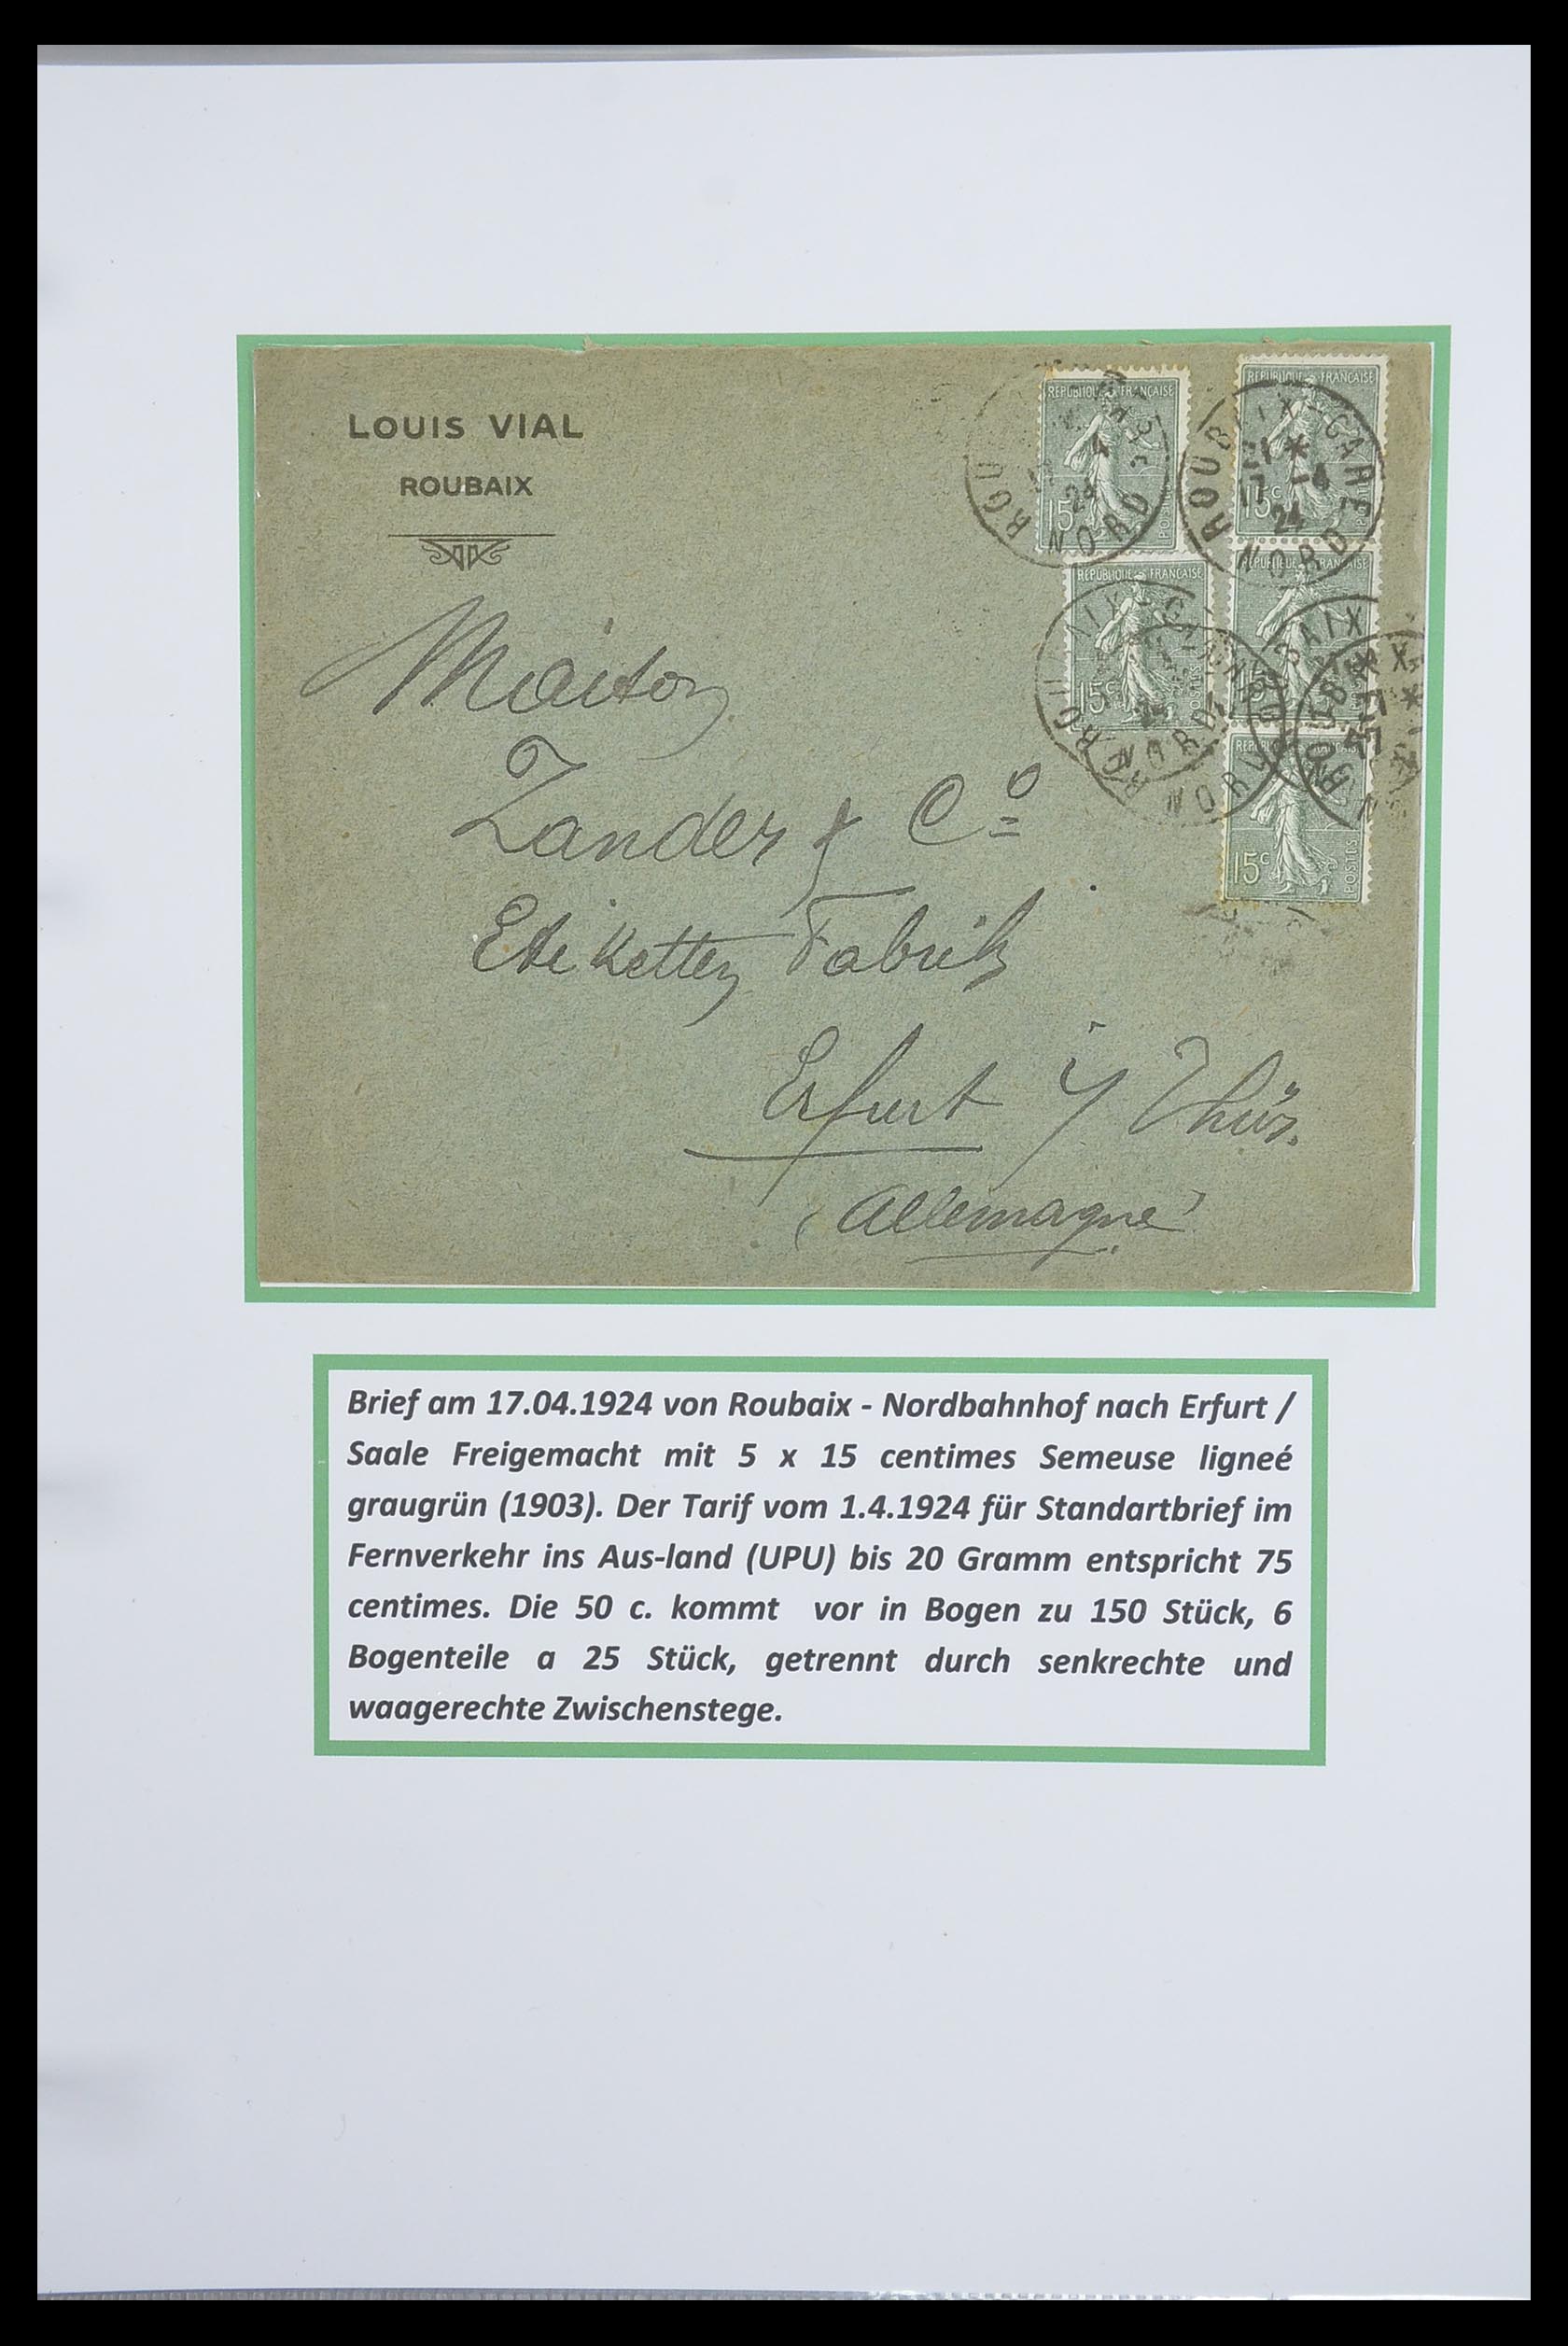 LOUIS VIAL
ROUBAIX
REPUBLIQUE FRANÇAISE
15c
POSTES
REPUBLIQUE FRANÇAISE
15c
POSTES
REPUBLIQUE FRANÇAISE
15c
POSTES
REPUBLIQUE FRANÇAISE
15c
15c
POSTES
ROUBAIX-GARE
21 *
17 -4
24
NORD
Maison
Zander & Co
Etiketten Fabrik
Erfurt i/Thür.
(Allemagne)
Brief am 17.04.1924 von Roubaix - Nordbahnhof nach Erfurt /
Saale Freigemacht mit 5 x 15 centimes Semeuse ligneé
graugrün (1903). Der Tarif vom 1.4.1924 für Standartbrief im
Fernverkehr ins Aus-land (UPU) bis 20 Gramm entspricht 75
centimes. Die 50 c. kommt vor in Bogen zu 150 Stück, 6
Bogenteile a 25 Stück, getrennt durch senkrechte und
waagerechte Zwischenstege.